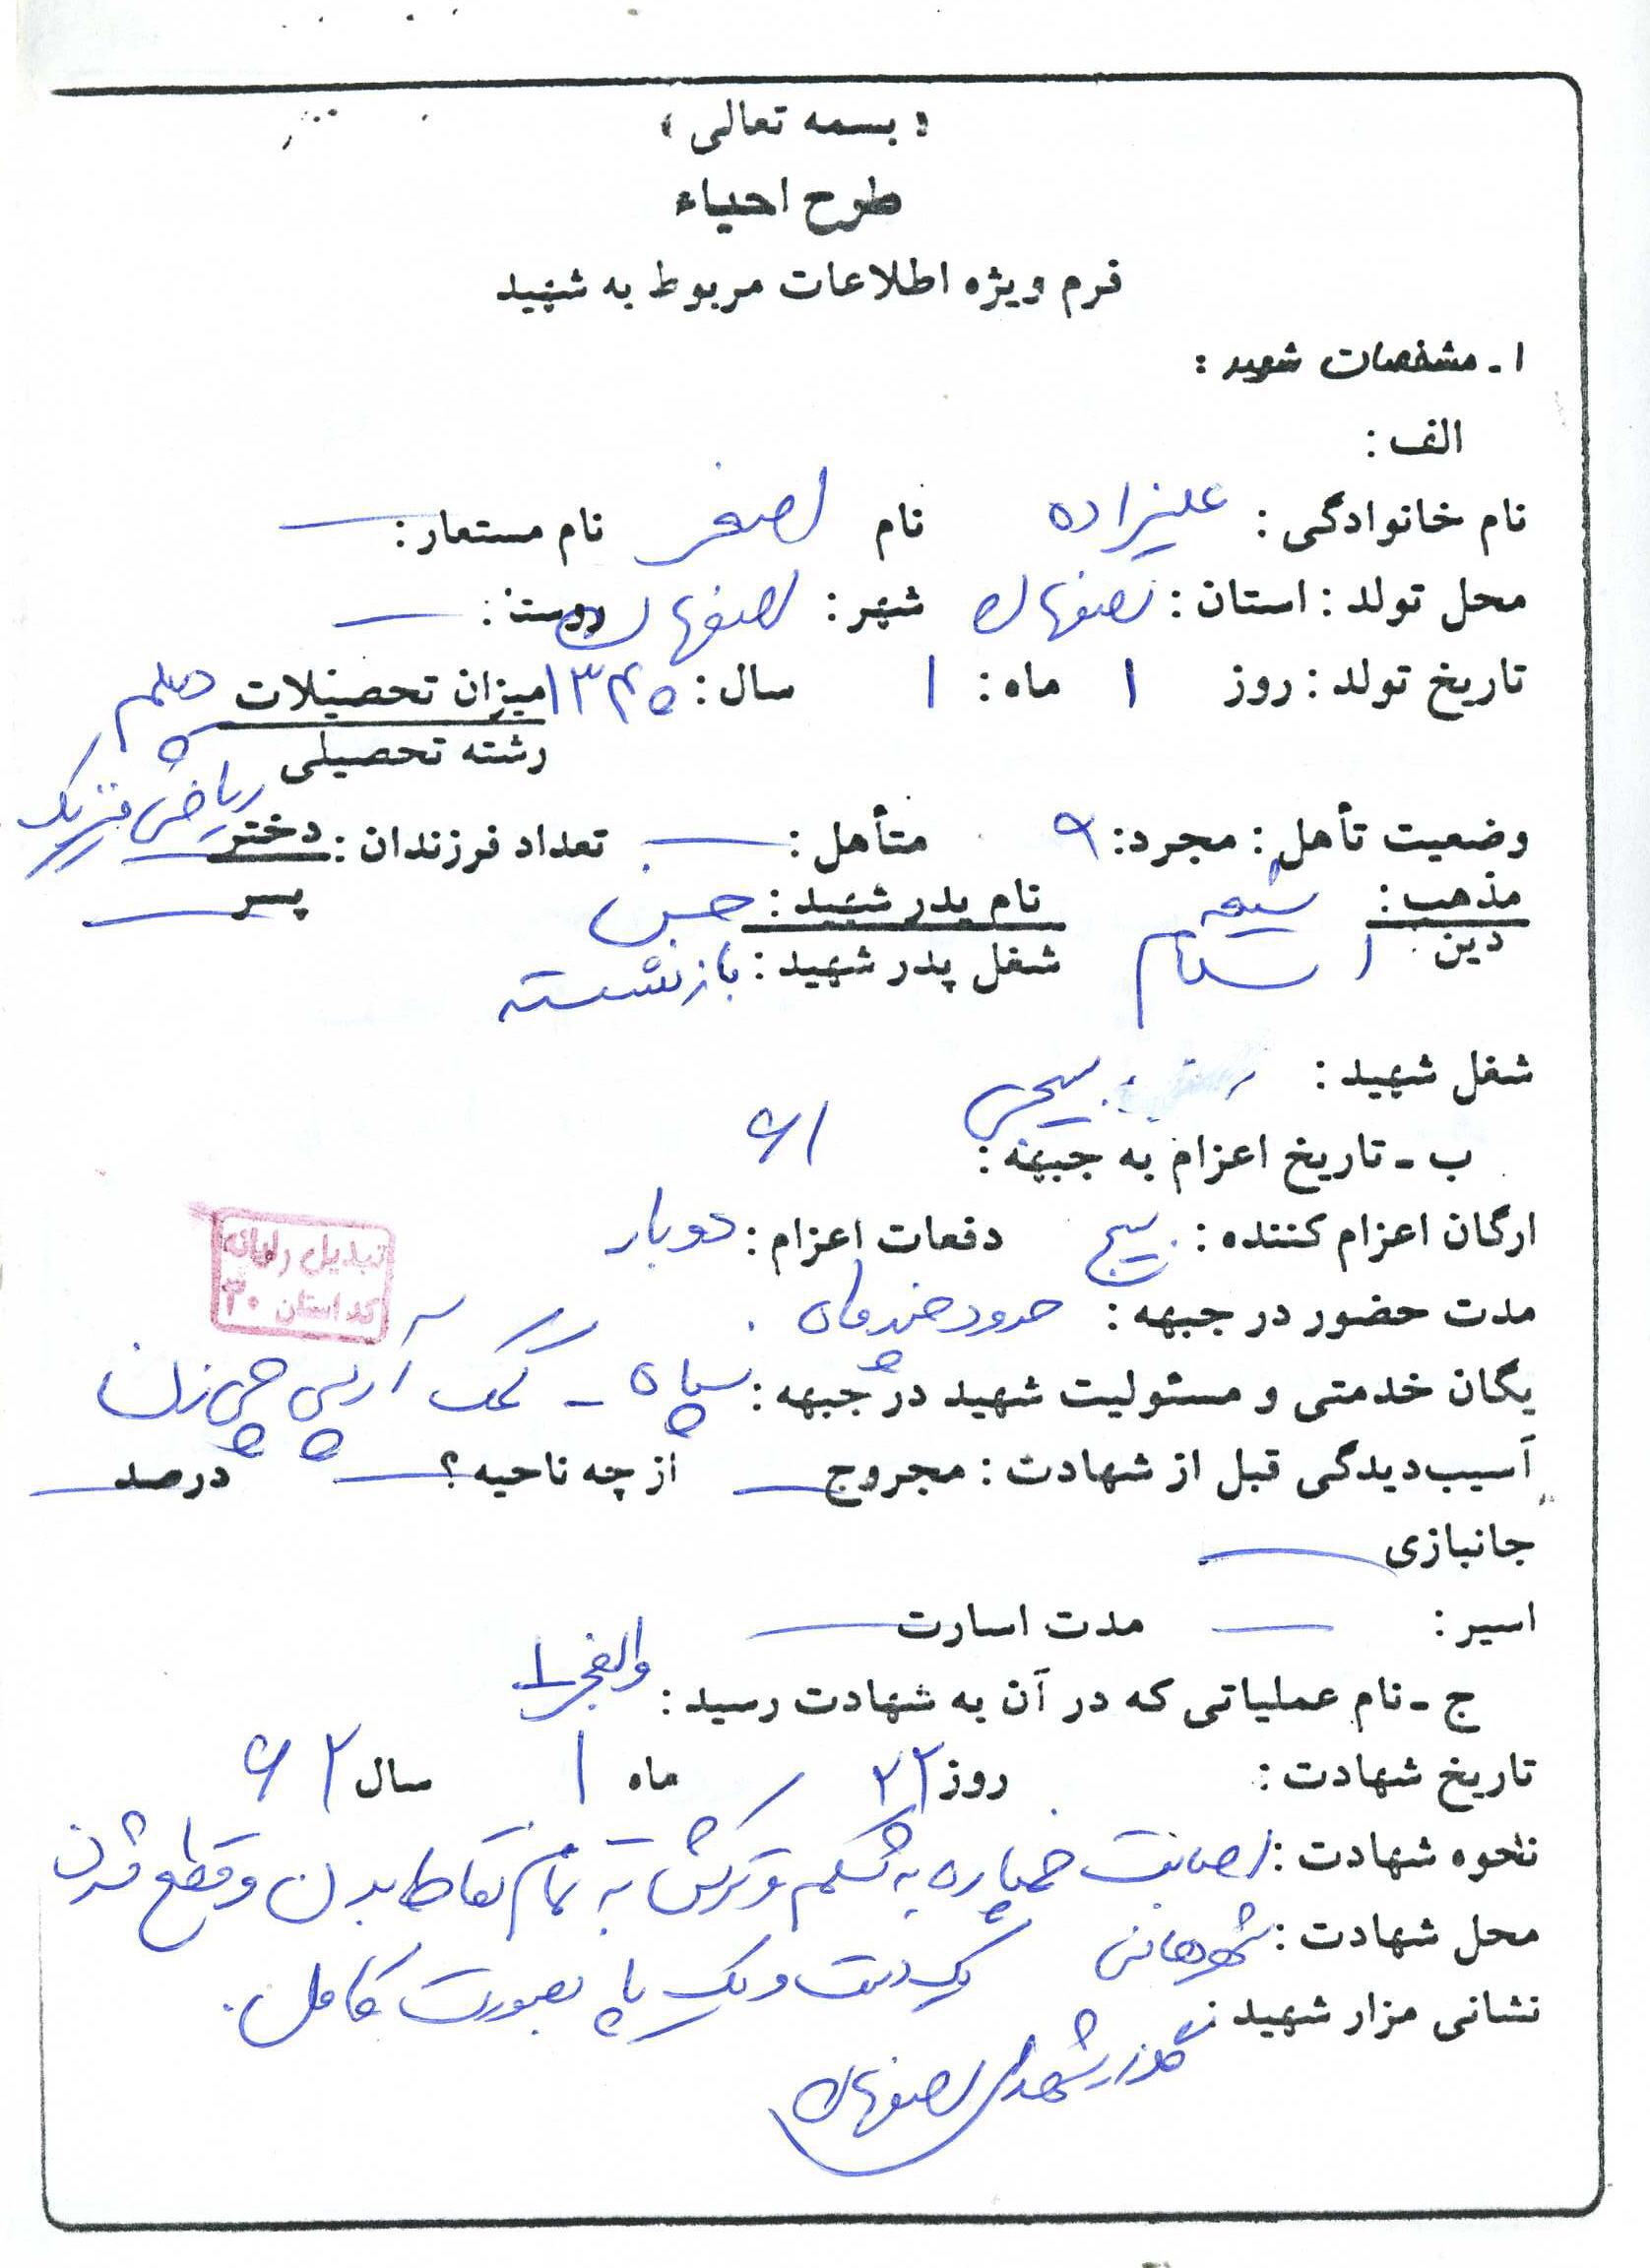 « بسمه تعالی »
طرح احیاء
فرم ویژه اطلاعات مربوط به شهید
۱ ـ مشخصات شهید :
الف :
نام خانوادگی : علیزاده نام اصغر نام مستعار : —
محل تولد : استان : اصفهان شهر : اصفهان روستا : —
تاریخ تولد : روز ۱ ماه : ۱ سال : ۱۳۴۵ میزان تحصیلات دیپلم
رشته تحصیلی ریاضی فیزیک
وضعیت تأهل : مجرد : متأهل : — تعداد فرزندان : دختر —
مذهب : شیعه نام پدر شهید : حسن پسر —
دین اسلام شغل پدر شهید : بازنشسته
شغل شهید : بسیجی
ب ـ تاریخ اعزام به جبهه : ۶۱
ارگان اعزام کننده : بسیج دفعات اعزام : دوبار
تبدیل رایانه
کد استان ۳۰
مدت حضور در جبهه : حدود چند ماه .
یگان خدمتی و مسئولیت شهید در جبهه : سپاه – کمک آرپی جی زن
آسیب‌دیدگی قبل از شهادت : مجروح — از چه ناحیه ؟ — درصد —
جانبازی —
اسیر : — مدت اسارت —
ج ـ نام عملیاتی که در آن به شهادت رسید : والفجر ۱
تاریخ شهادت : روز ۲۲ ماه ۱ سال ۶۲
نحوه شهادت : اصابت خمپاره به شکم و ترکش به تمام نقاط بدن و قطع شدن
محل شهادت : شرهانی یک دست و یک پا بصورت کامل.
نشانی مزار شهید : گلزار شهدای اصفهان